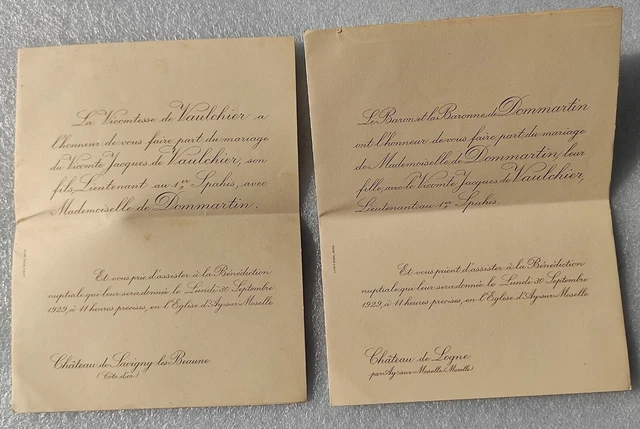 La Vicomtesse de Vaulchier a
l'honneur de vous faire part du mariage
du Vicomte Jacques de Vaulchier, son
fils, Lieutenant au 1er Spahis, avec
Mademoiselle de Dommartin.
Et vous prie d'assister à la Bénédiction
nuptiale qui leur sera donnée le Lundi 30 Septembre
1929, à 11 heures précises, en l'Eglise d'Ay-sur-Moselle
Château de Savigny-lès-Beaune
(Côte d'or)
Le Baron et la Baronne de Dommartin
ont l'honneur de vous faire part du mariage
de Mademoiselle de Dommartin, leur
fille, avec le Vicomte Jacques de Vaulchier,
Lieutenant au 1er Spahis.
Et vous prient d'assister à la Bénédiction
nuptiale qui leur sera donnée le Lundi 30 Septembre
1929, à 11 heures précises, en l'Eglise d'Ay-sur-Moselle
Château de Logne
par Ay-sur-Moselle (Moselle)